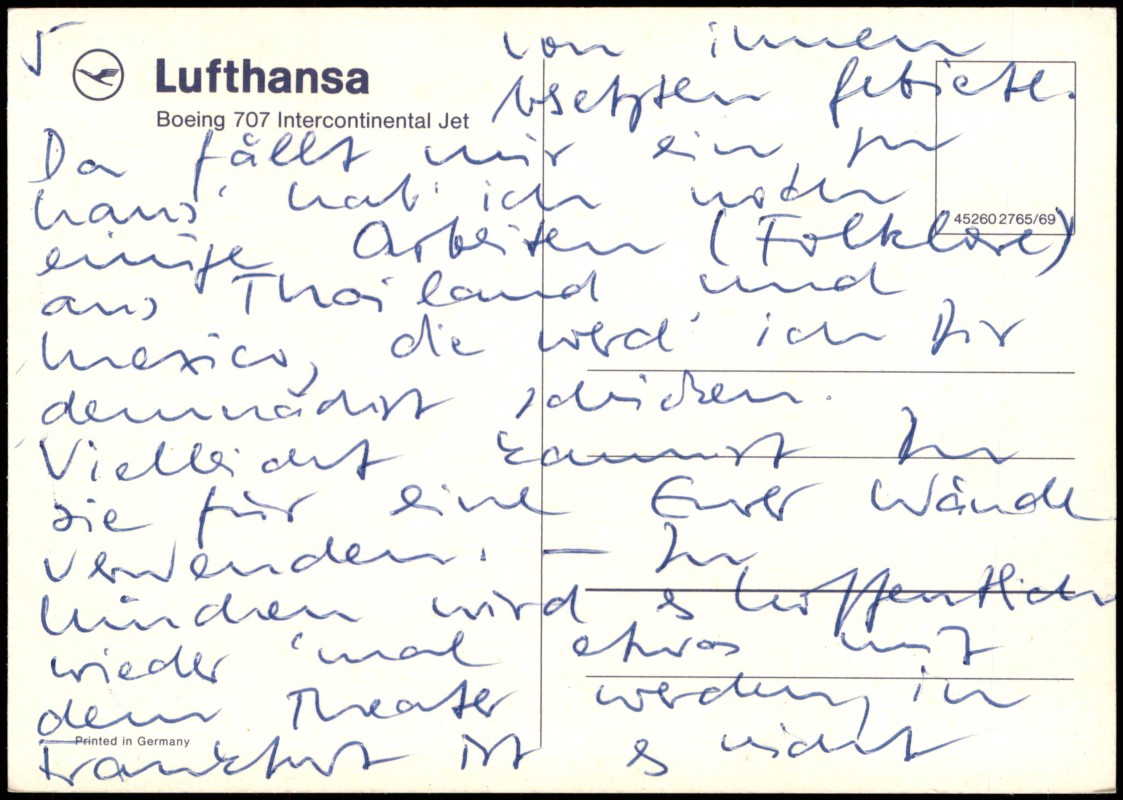 5
Lufthansa
Boeing 707 Intercontinental Jet
von ihnen
besetzten Gebiete.
Da fällt mir ein, zu
haus' hab' ich noch
einige Arbeiten (Folklore)
45260 2765/69
aus Thailand und
Mexico, die werd' ich Dir
demnächst schicken.
Vielleicht kannst Du
sie für eine Eurer Wände
verwenden. – In
München wird es hoffentlich
wieder 'mal etwas mit
dem Theater werden, in
Printed in Germany
Frankfurt ist es nicht